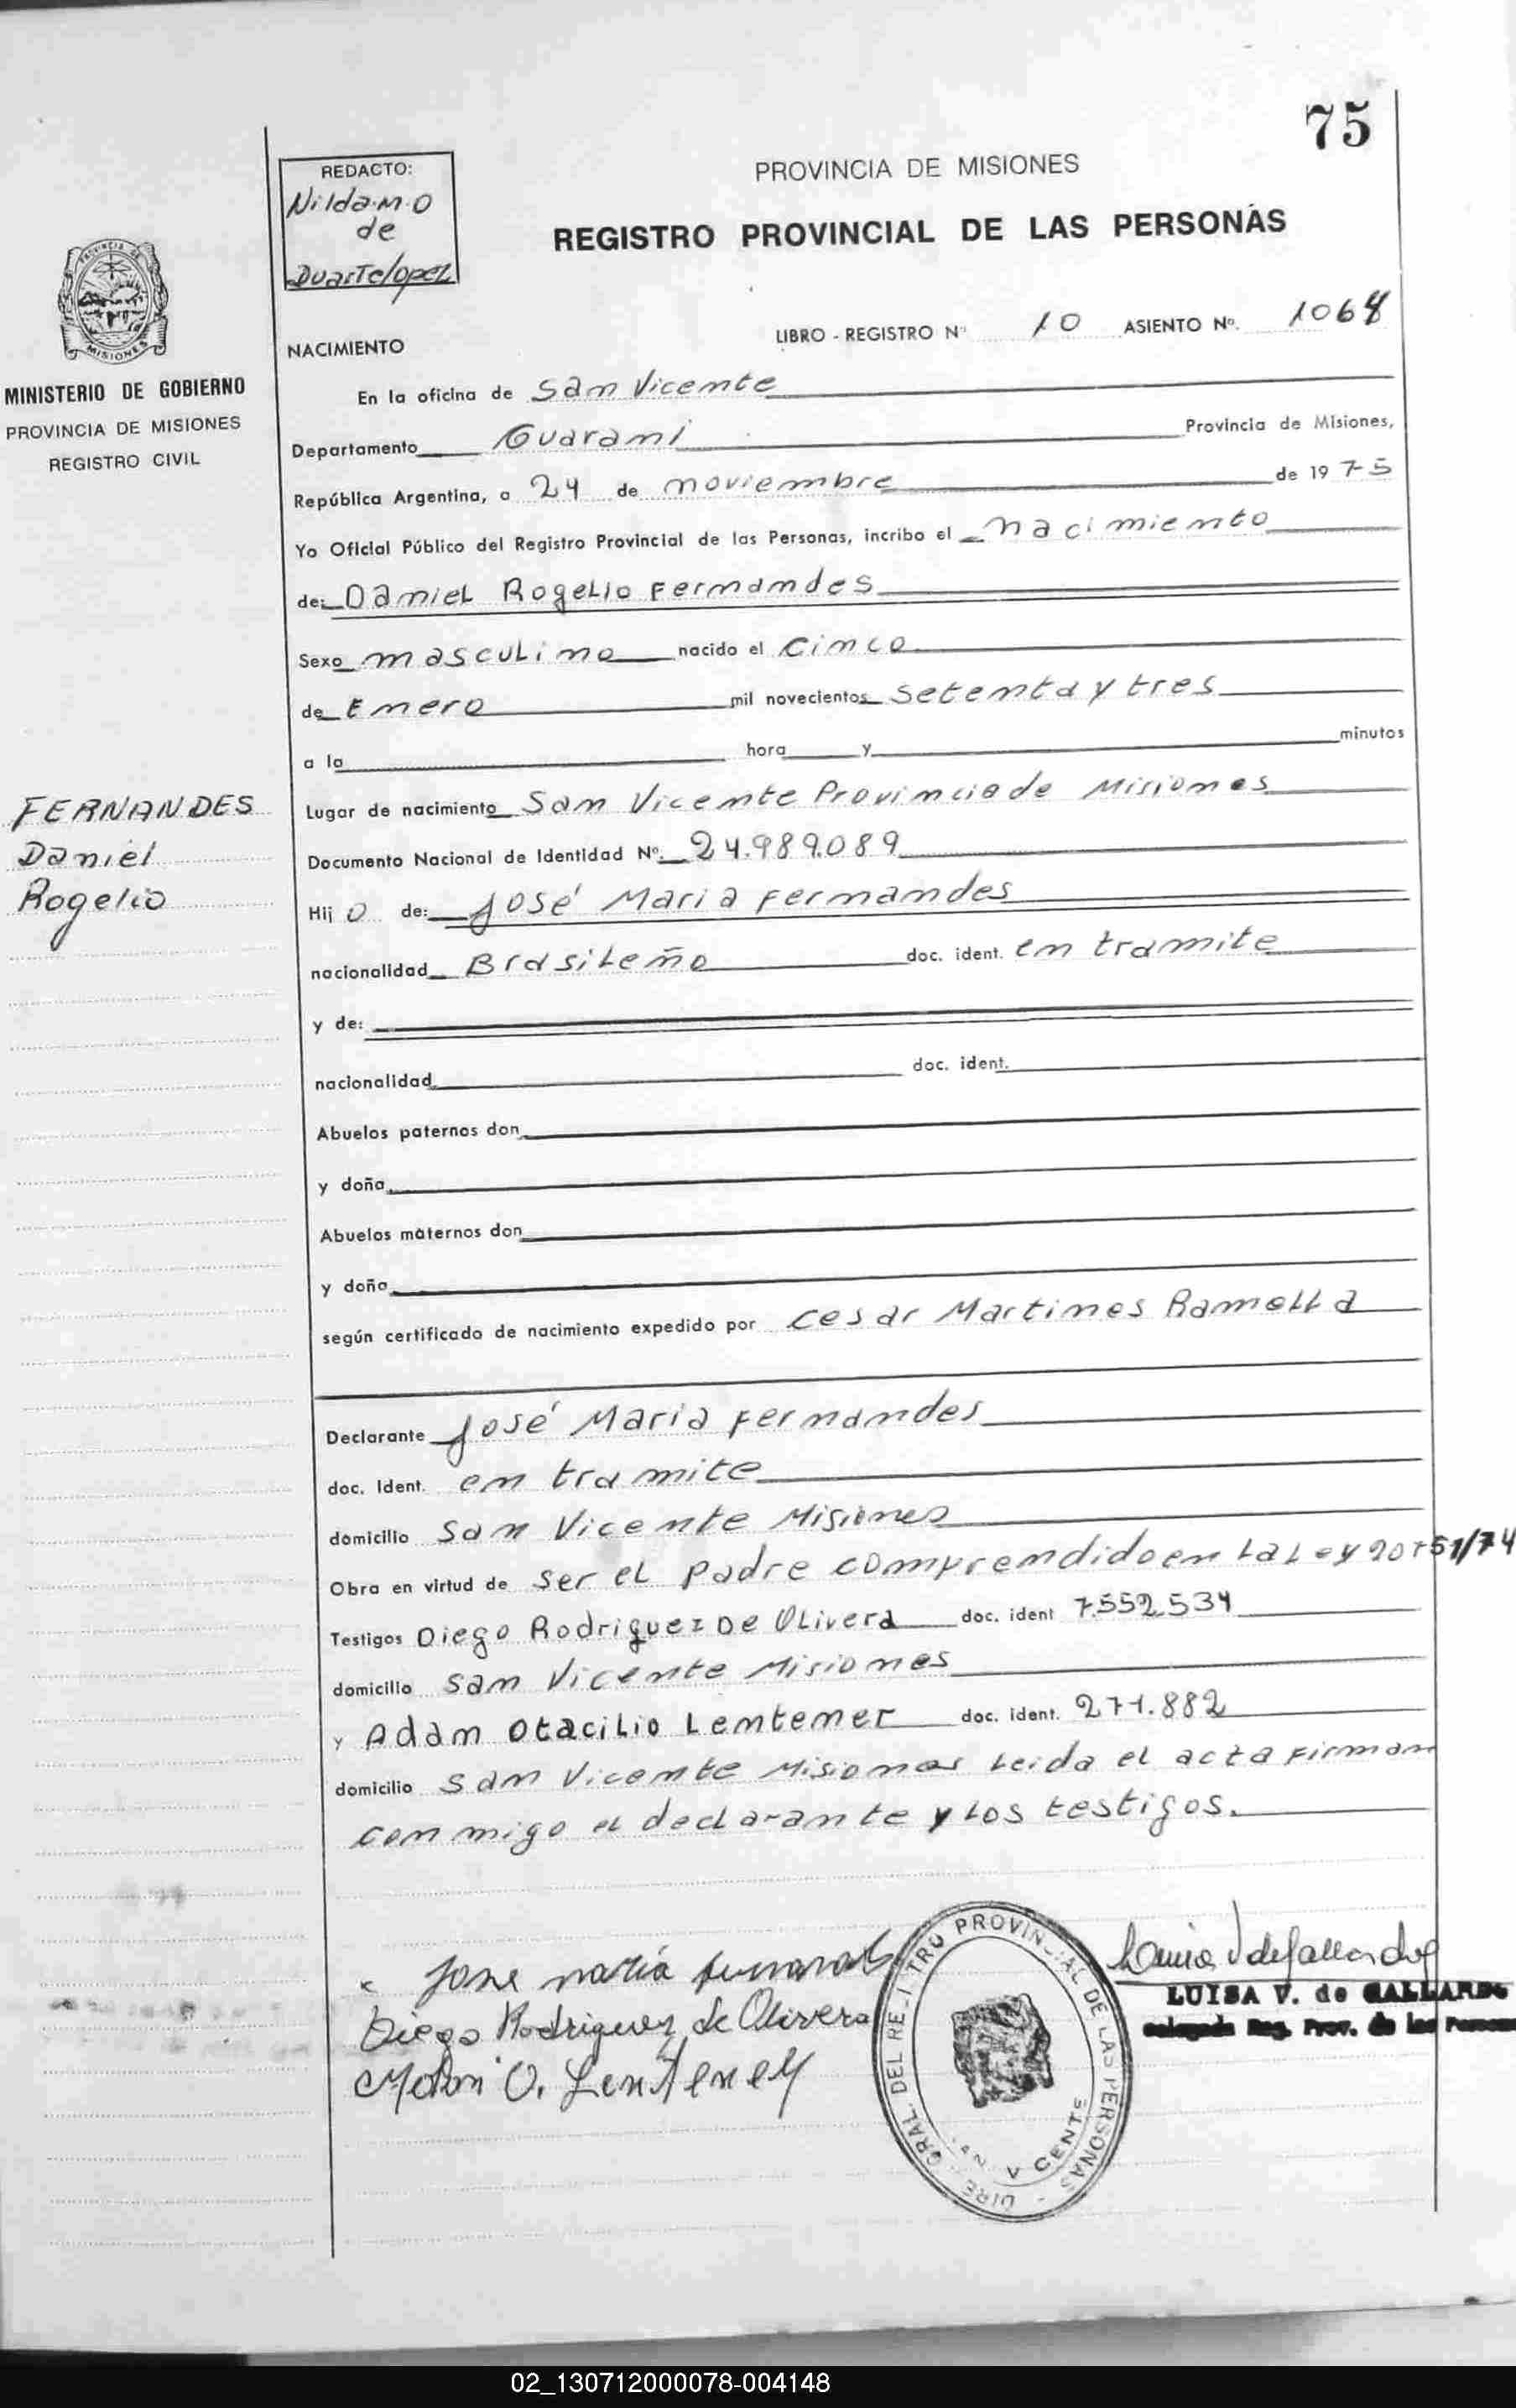 75
REDACTO:
Nilda.M.O
de
Duartelopez
PROVINCIA DE MISIONES
REGISTRO PROVINCIAL DE LAS PERSONAS
LIBRO - REGISTRO Nº 10 ASIENTO Nº. 1068
NACIMIENTO
MINISTERIO DE GOBIERNO
PROVINCIA DE MISIONES
REGISTRO CIVIL
En la oficina de San Vicente
Departamento Guarani Provincia de Misiones,
República Argentina, a 24 de noviembre de 1975
Yo Oficial Público del Registro Provincial de las Personas, incribo el nacimiento
de: Daniel Rogelio Fernandes
Sexo masculino nacido el Cinco
de Enero mil novecientos setenta y tres
a la hora y minutos
FERNANDES
Daniel
Rogelio
Lugar de nacimiento San Vicente Provincia de Misiones
Documento Nacional de Identidad Nº. 24.989.089
Hij o de: José Maria Fernandes
nacionalidad Brasileño doc. ident. en tramite
y de:
nacionalidad doc. ident.
Abuelos paternos don
y doña
Abuelos maternos don
y doña
según certificado de nacimiento expedido por Cesar Martines Ramella
Declarante José Maria Fernandes
doc. Ident. en tramite
domicilio San Vicente Misiones
Obra en virtud de ser el padre comprendido en la Ley 20751/74
Testigos Diego Rodriguez De Olivera doc. ident 7.552.534
domicilio San Vicente Misiones
y Adam Otacilio Lentener doc. ident. 271.882
domicilio San Vicente Misiones Leida el acta firman
conmigo el declarante y los testigos.
Jose maria
Diego Rodriguez de Olivera
O. Lentener
LUISA V. de GALLARDO
Reg. Prov. de las Personas
DIRE GRAL DEL RE I TRO PROVINCIAL DE LAS PERSONAS
AN V CENTE
PROVINCIA DE
MISIONES
02_130712000078-004148